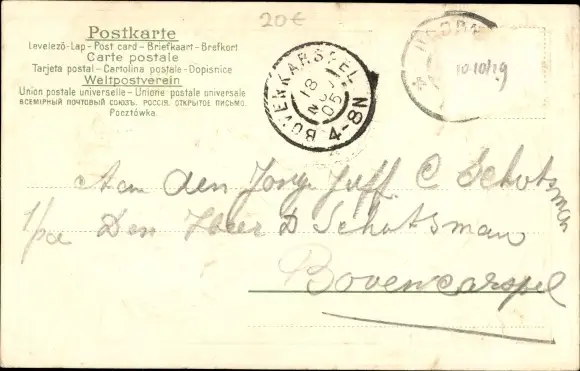 20€
Postkarte
Levelező-Lap - Post card - Briefkaart - Brefkort
Carte postale
Tarjeta postal - Cartolina postale - Dopisnice
Weltpostverein
Union postale universelle - Unione postale universale
ВСЕМІРНЫЙ ПОЧТОВЫЙ СОЮЗЪ. РОССІЯ. ОТКРЫТОЕ ПИСЬМО.
Pocztówka.
BOVENKARSPEL
18
05
4-8N
10-10/29
Aan den Jong Juff. C Schotsman
p/a Den Heer D Schotsman
Bovencarspel